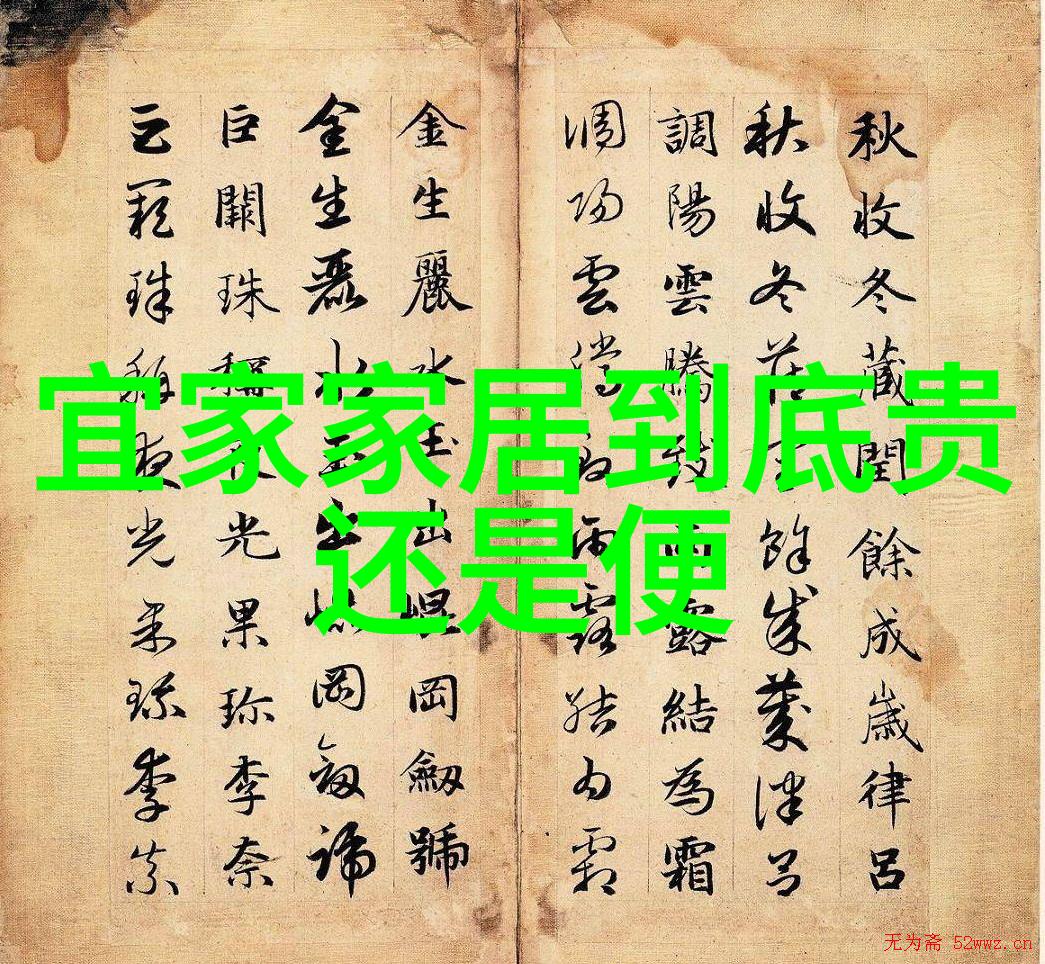 宜家家居到底贵
还是便
秋收冬藏閏餘成歲律呂
秋收冬藏閏餘成歲律呂
調陽雲騰致雨露結為霜
調陽雲騰致雨露結為霜
金生麗水玉出崐岡劔號
金生麗水玉出崐岡劔號
巨闕珠稱夜光果珍李柰
巨闕珠稱夜光果珍李柰
无为斋 52wwz.cn